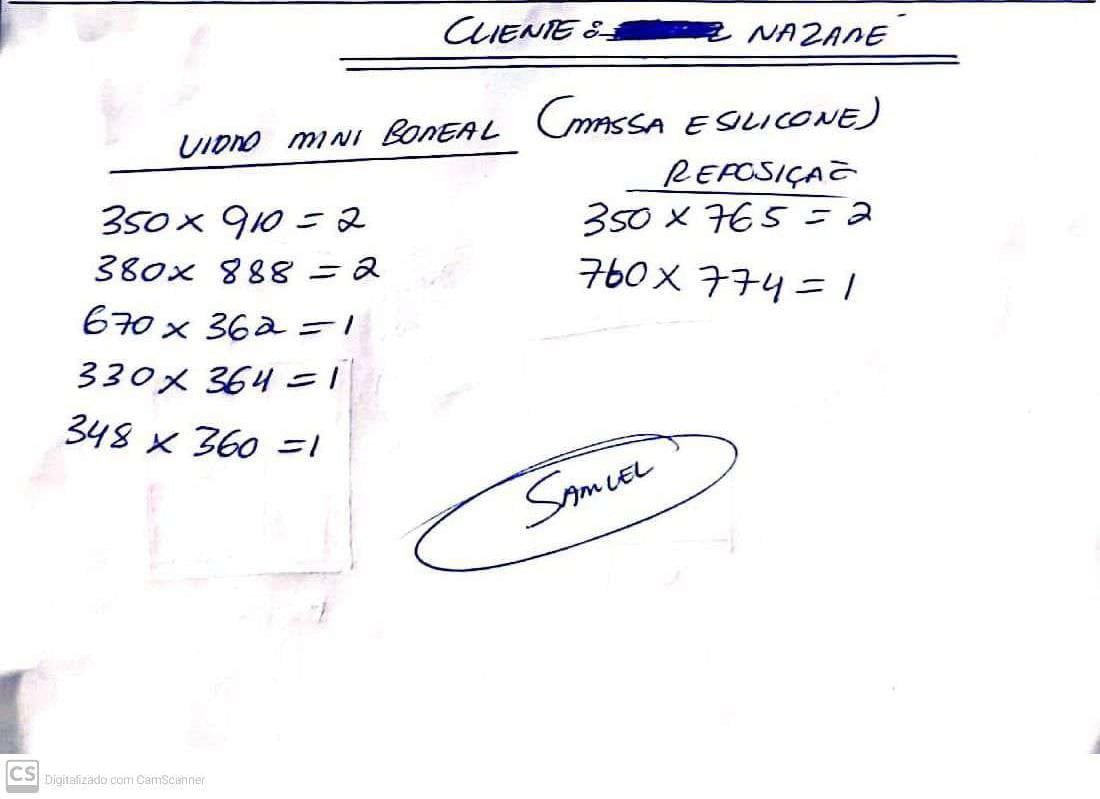 CLIENTE: NAZARÉ
VIDRO MINI BOREAL (MASSA E SILICONE)
350 x 910 = 2
380 x 888 = 2
670 x 362 = 1
330 x 364 = 1
348 x 360 = 1
REPOSIÇÃO
350 x 765 = 2
760 x 774 = 1
SAMUEL
CS Digitalizado com CamScanner